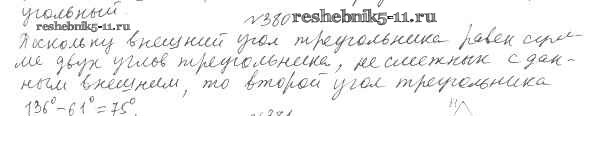 угольный.
№380 reshebnik5-11.ru
reshebnik5-11.ru
Поскольку внешний угол треугольника равен сум-
ме двух углов треугольника, не смежных с дан-
ным внешним, то второй угол треугольника
136°-61°=75°.